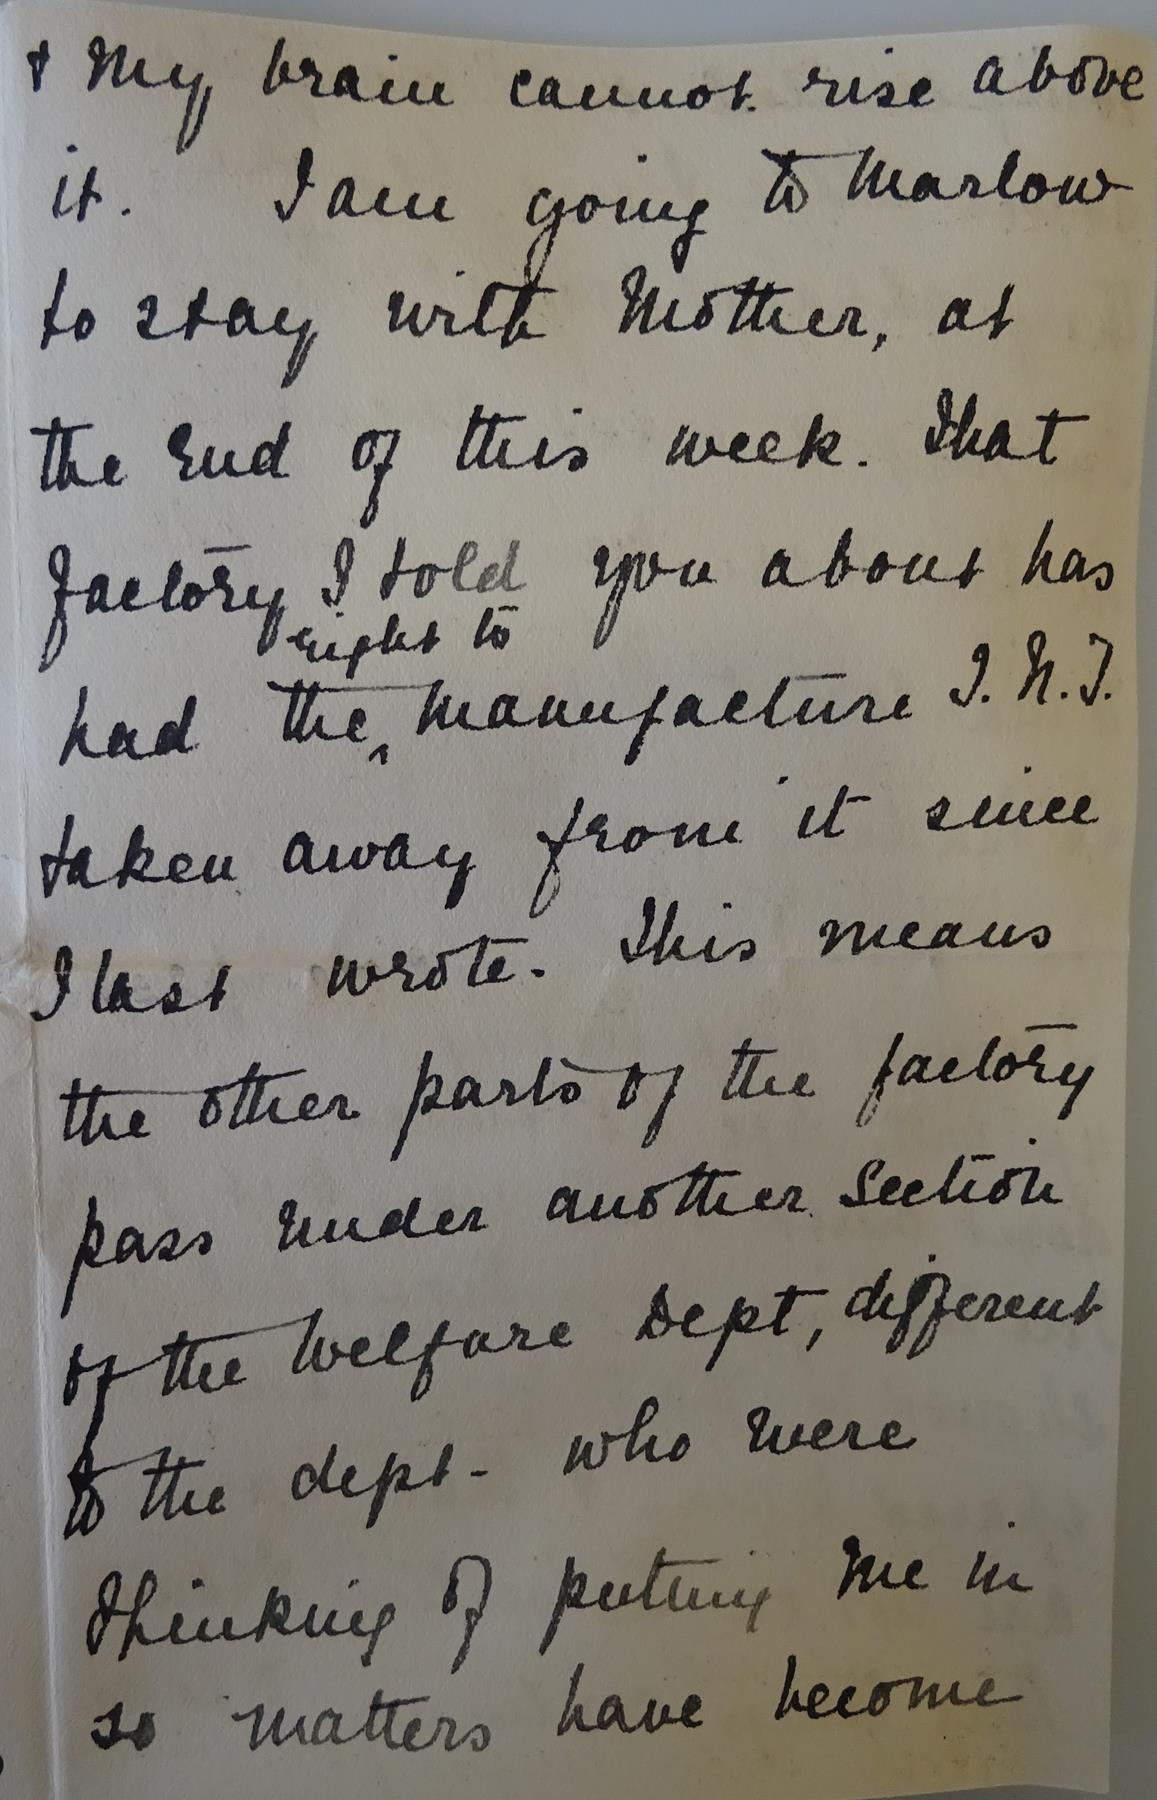 & My brain cannot rise above
it. I am going to Marlow
to stay with Mother, at
the end of this week. That
factory I told you about has
right to
had the ^ manufacture T.N.T.
taken away from it since
I last wrote. This means
the other parts of the factory
pass under another Section
of the Welfare Dept, different
to the dept. who were
thinking of putting me in
so matters have become